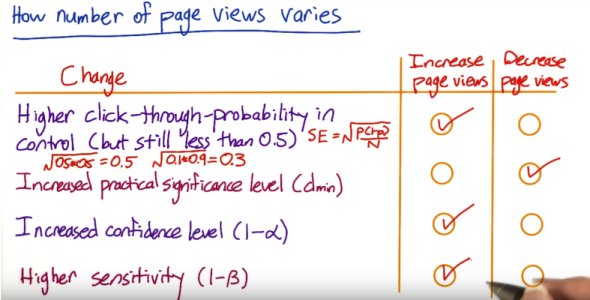 How number of page views varies
Increase page views
Decrease page views
Change
Higher click-through-probability in
control (but still less than 0.5) SE=√P(1-P)/N
√0.5*0.5 = 0.5 √0.1*0.9 = 0.3
Increased practical significance level (dmin)
Increased confidence level (1-α)
Higher sensitivity (1-β)